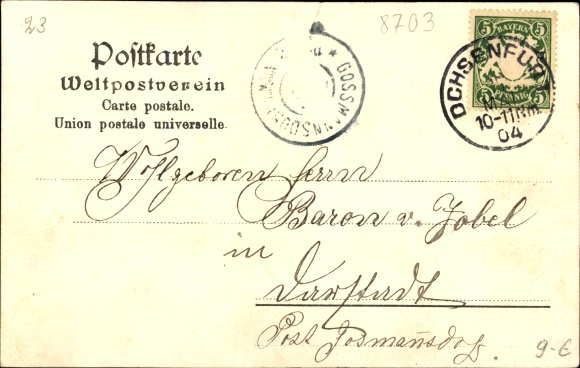 23
8703
Postkarte
Weltpostverein
Carte postale.
Union postale universelle.
GOSSMANNSDORF
5 BAYERN 5
5 PFENNIG 5
OCHSENFURT
10-11
04
Wohlgeboren Herrn
Baron v. Zobel
in
Darstadt
Post Gosmannsdorf.
9-E